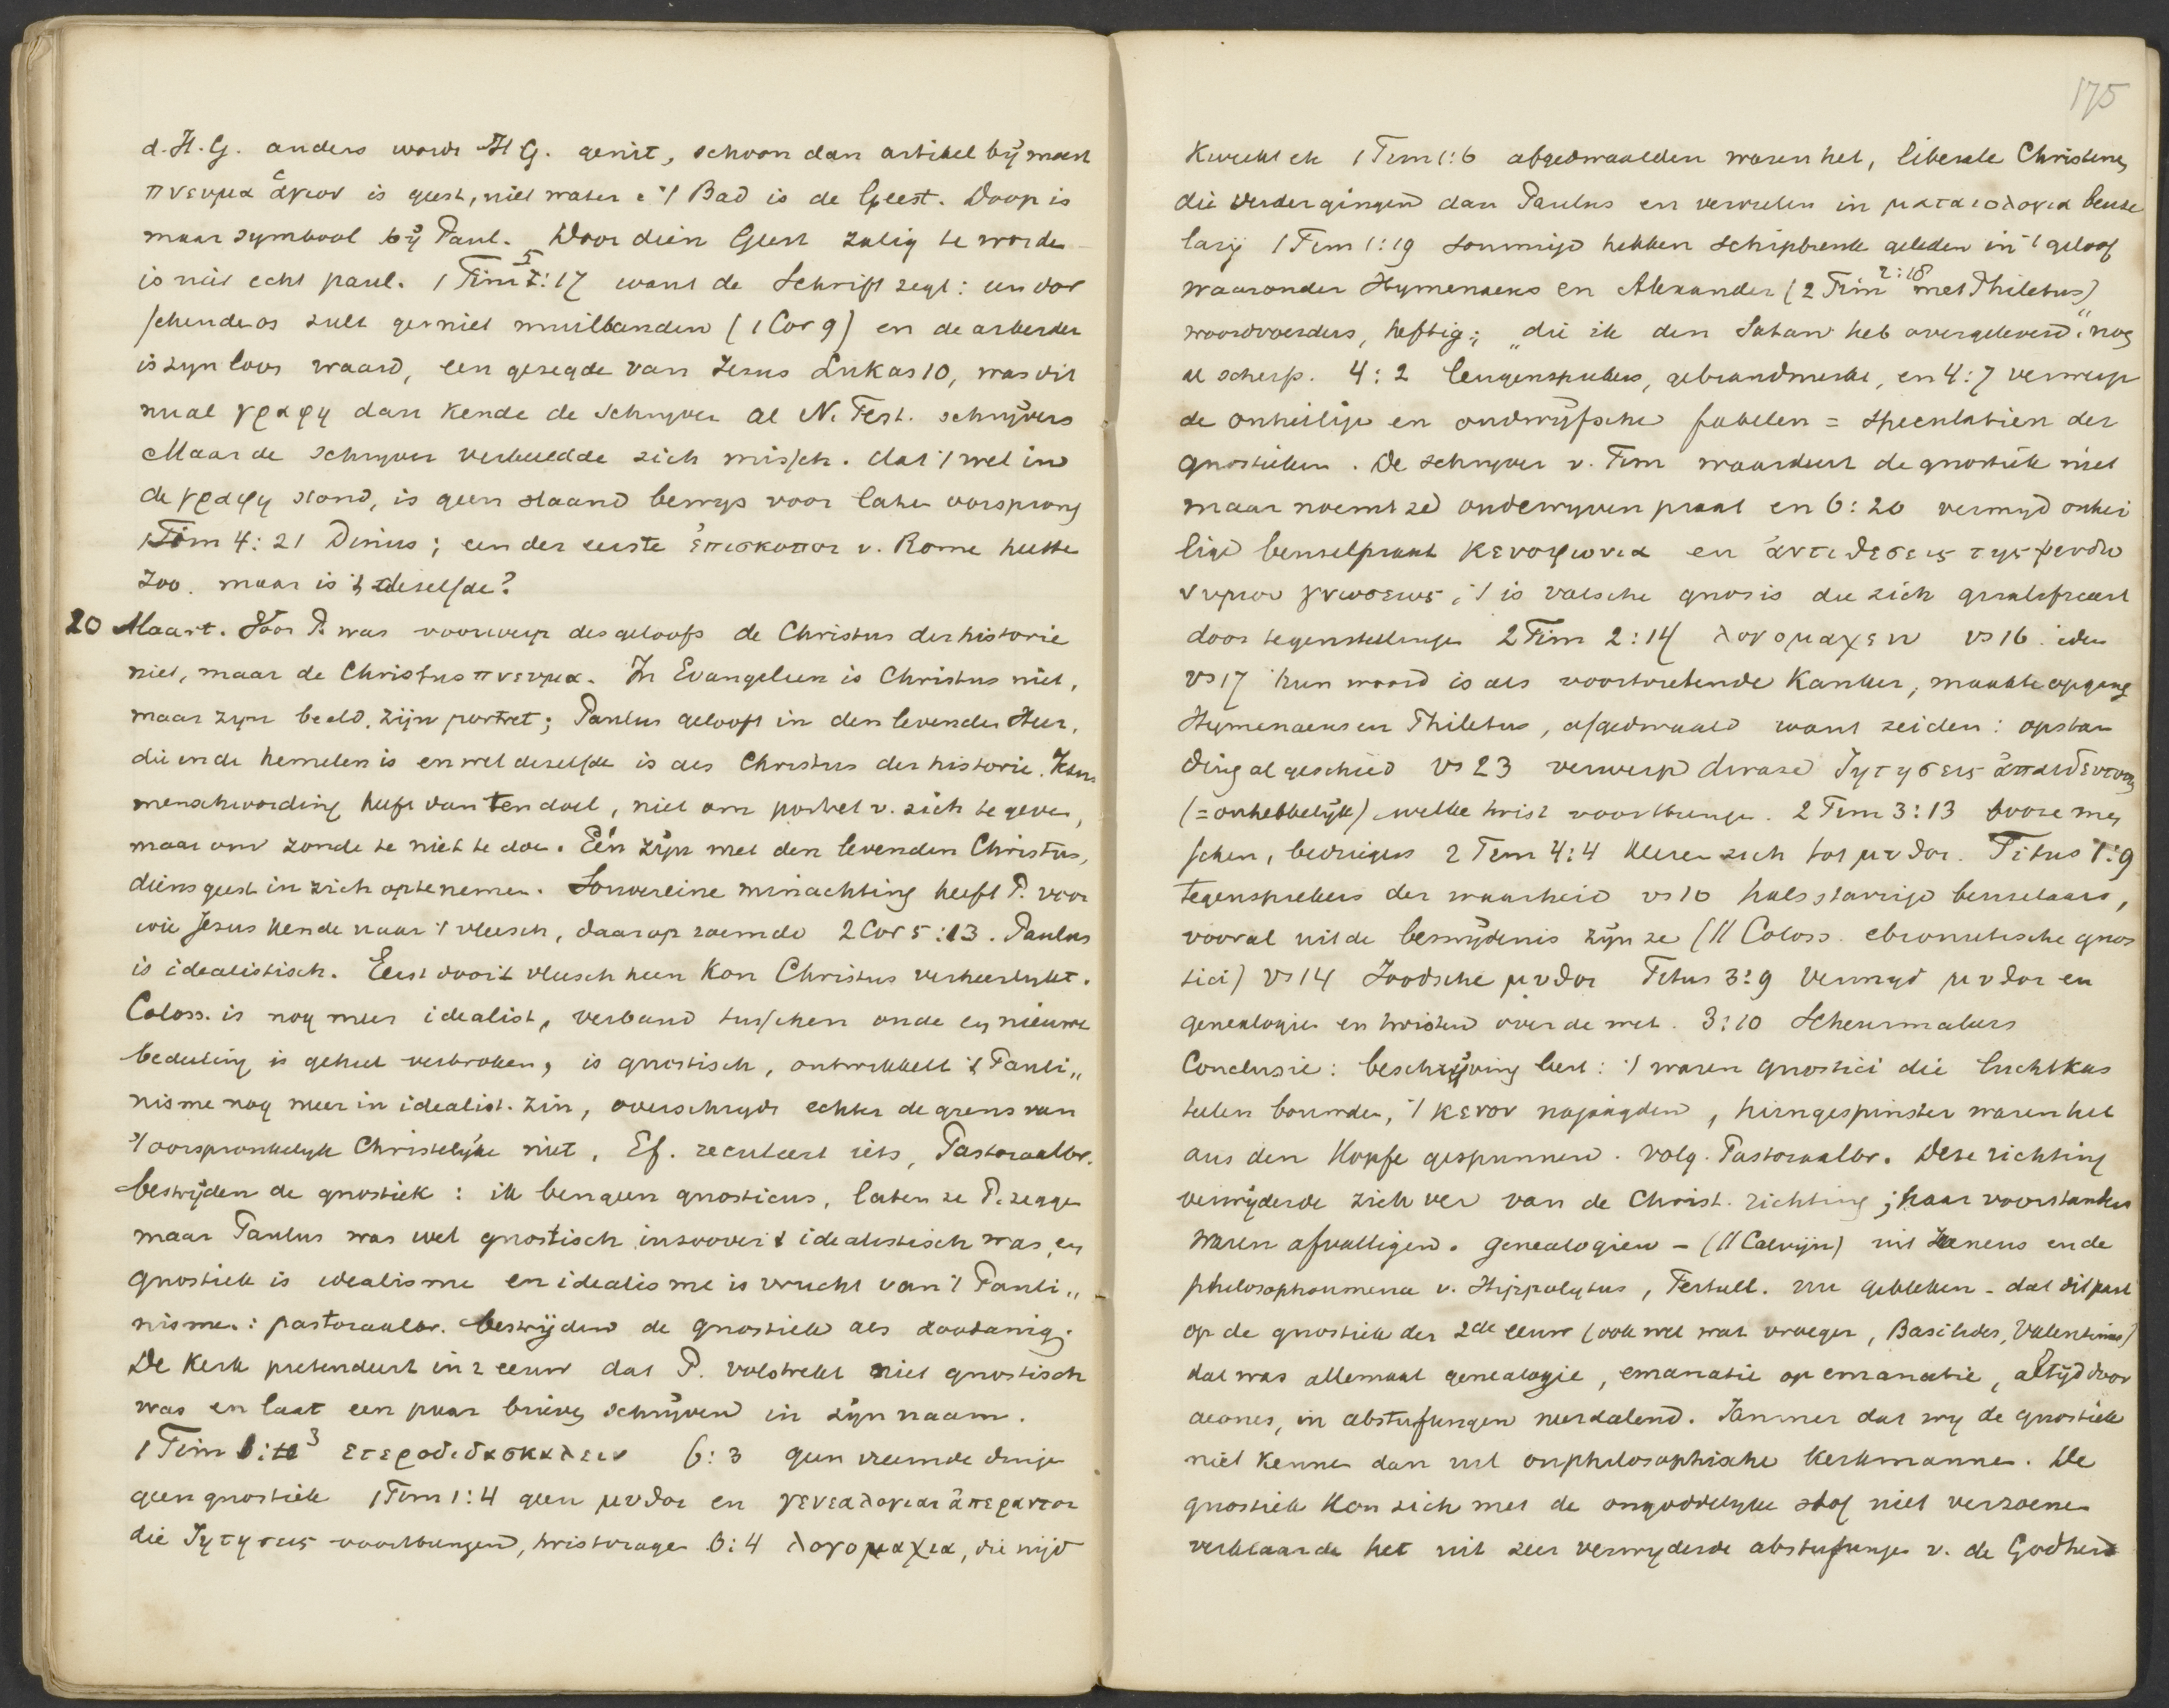 d. H. G. anders wordt H G. genit, schoon dan artikel bij moest
πνευμα ἁγιον is geest, niet water. 't Bad is de Geest. Doop is
maar symbool bij Paul. Door dien Geest zalig te worde
is niet echt paul. 1 Tim 5:17 want de Schrift zegt: een dor
schende os zult ge niet muilbanden (1 Cor 9) en de arbeider
is zyn loon waard, een gezegde van Jezus Lukas 10, was dit
nu al γραφη dan kende de Schryver al N. Test. schrijvers
Maar de Schryver verbeeldde zich missch. dat 't wel in
de γραφη stond, is geen staand bewys voor later oorsprong
1 Tim 4:21 Linus; een der eerste ἐπισκοποι v. Rome heette
zoo. maar is 't dezelfde?
20 Maart. Voor P. was voorwerp des geloofs de Christus der historie
niet, maar de Christus πνευμα. In Evangelien is Christus niet,
maar zyn beeld, zijn portret; Paulus gelooft in den levenden Heer,
die in de hemelen is en wel dezelfde is als Christus der historie. Jezus
menschwording heeft dan ten doel, niet om portret v. zich te geven,
maar om zonde te niet te doen. Eén zijn met den levenden Christus,
diens geest in zich op te nemen. Souvereine minachting heeft P. voor
wie Jezus kende naar 't vleesch, daarop roemde 2 Cor 5:13. Paulus
is idealistisch. Eerst door 't vleesch heen kon Christus verheerlykt.
Coloss. is nog meer idealist, verband tusschen oude en nieuwe
bedeeling is geheel verbroken, is gnostisch, ontwikkelt 't Pauli„
nisme nog meer in idealist. zin, overschrydt echter de grens van
't oorspronkelyk Christelijke niet. Ef. reculeert iets, Pastoraalbr.
bestrijden de gnostiek: ik ben geen gnosticus, laten ze P. zegge
maar Paulus was wel gnostisch in zoover 't idealistisch was, en
gnostiek is idealisme en idealisme is vrucht van 't Pauli„
nisme: pastoraalbr. bestrijden de gnostiek als zoodanig.
De Kerk pretendeert in 2 eeuw dat P. volstrekt niet gnostisch
was en laat een paar brieven schrijven in zijn naam.
1 Tim 1:3 ετεροδιδασκαλειν 6:3 geen vreemde dinge
geen gnostiek 1 Tim 1:4 geen μυθοι en γενεαλογιαι ἀπεραντοι
die ζητησεις voortbrengen, twistvrage 6:4 λογομαχια, die nijd
175
kweekt ek 1 Tim 1:6 afgedwaalden waren het, liberale Christenen
die verder gingen dan Paulus en vervielen in ματαιολογια beuze
larij 1 Tim 1:19 sommige hebben schipbreuk geleden in 't geloof
waaronder Hymenaeus en Alexander (2 Tim 2:18 met Philetus)
woordvoerders, heftig; „die ik den Satan heb overgeleverd". nog
al scherp. 4:2 leugensprekers, gebrandmerkt, en 4:7 verwerp
de onheilige en oudwijfsche fabelen = speculatien der
gnostieken. De schryver v. Tim waardeert de gnostiek niet
maar noemt ze oudewyven praat en 6:20 vermyd onhei
lige beuzelpraat κενοφωνια en ἀντιθεσεις της ψευδω
νυμου γνωσεως, 't is valsche gnosis die zich qualificeert
door tegenstellinge 2 Tim 2:14 λογομαχειν vs 16 idem
vs 17 hun woord is als voortvretende kanker, maakte opgang
Hymenaeus en Philetus, afgedwaald want zeiden: opstan
ding al geschied vs 23 verwerp dwaze ζητησεις ἀπαιδευτους
(= onhebbelijk) welke twist voortbrenge. 2 Tim 3:13 booze men
schen, bedriegers 2 Tim 4:4 keeren zich tot μυθοι. Titus 1:9
tegensprekers der waarheid vs 10 halsstarrige beuzelaars,
vooral uit de besnijdenis zijn ze (// Coloss. ebionitische gnos
tici) vs 14 Joodsche μυθοι Titus 3:9 Vermyd μυθοι en
genealogien en twisten over de wet. 3:10 Scheurmakers
Conclusie: beschrijving leert: 't waren gnostici die luchtkas
teelen bouwden, 't κενον najaagden, hirngespinster waren het
aus den Kopfe gespunnen. volg. Pastoraalbr. Deze richting
verwijderde zich ver van de Christ. richting; haar voorstanders
waren afvalligen. genealogien – (// Calvijn) uit Ireneus en de
philosophoumena v. Hippolytus, Tertull. nu gebleken – dat dit past
op de gnostiek der 2de eeuw (ook wel wat vroeger, Basilides, Valentinus)
dat was allemaal genealogie, emanatie op emanatie, altijd door
aeones, in abstufungen neerdalend. Jammer dat wy de gnostiek
niet kennen dan uit onphilosophische Kerkmannen. De
gnostiek kon zich met de ongoddelyke stof niet verzoenen
verklaarde het uit zeer verwyderde abstufunge v. de Godheid